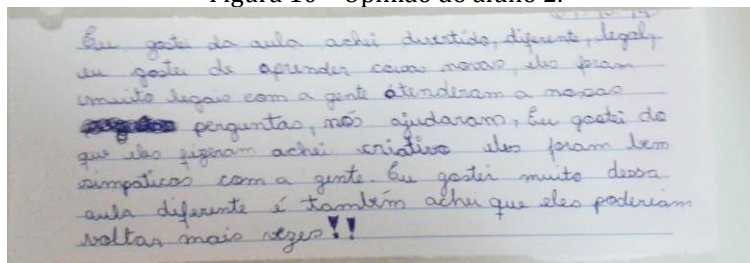 Figura 10 – Opinião do aluno 2.
Eu gostei da aula achei divertido, diferente, legal,
eu gostei de aprender coisas novas, eles foram
muito legais com a gente atenderam a nossas
perguntas, nós ajudaram, Eu gostei do
que eles fizeram achei criativo eles foram bem
simpaticos com a gente. Eu gostei muito dessa
aula diferente é também achei que eles poderiam
voltar mais vezes!!